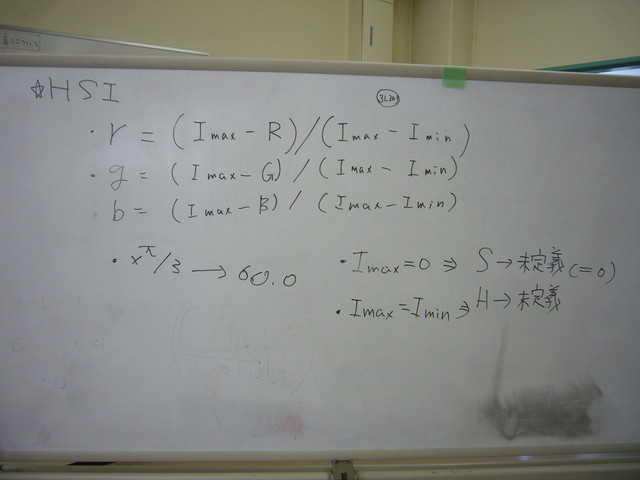 ☆HSI
・r = (Imax - R)/(Imax - Imin)
・g = (Imax - G)/(Imax - Imin)
b = (Imax - B)/(Imax - Imin)
・x π/3 → 60.0
・Imax=0 ⇒ S→未定義(=0)
・Imax=Imin ⇒ H→未定義